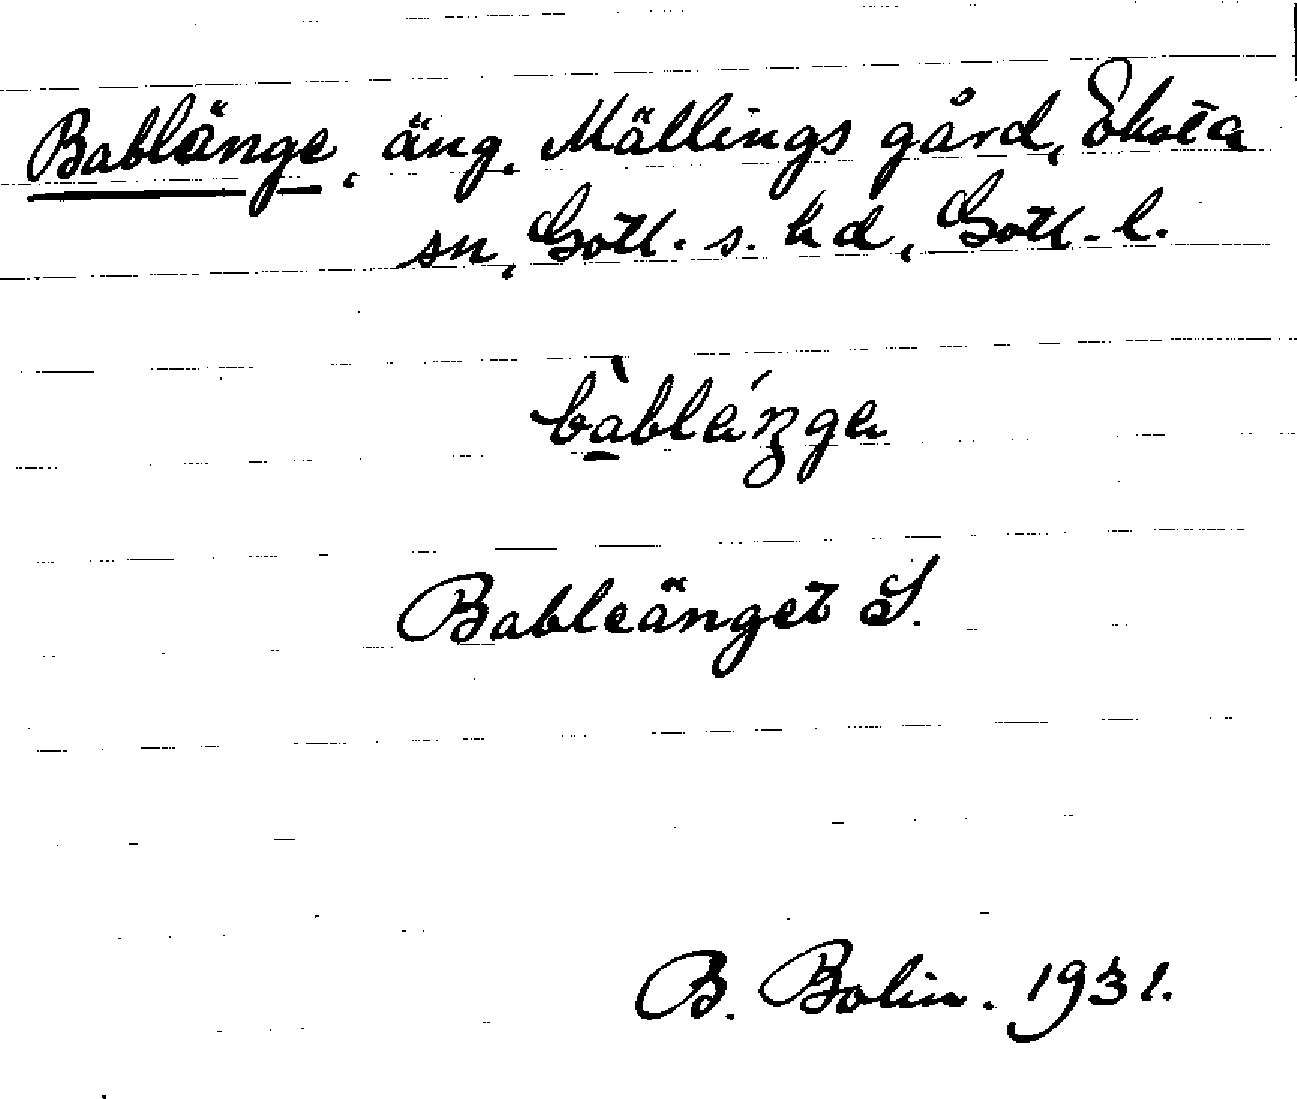 Bablänge, äng, Mällings gård, Eksta
sn, Gotl. s. hd, Gotl. l.
bàblεŋ́gε
Bableänget S.
B. Bolin. 1931.